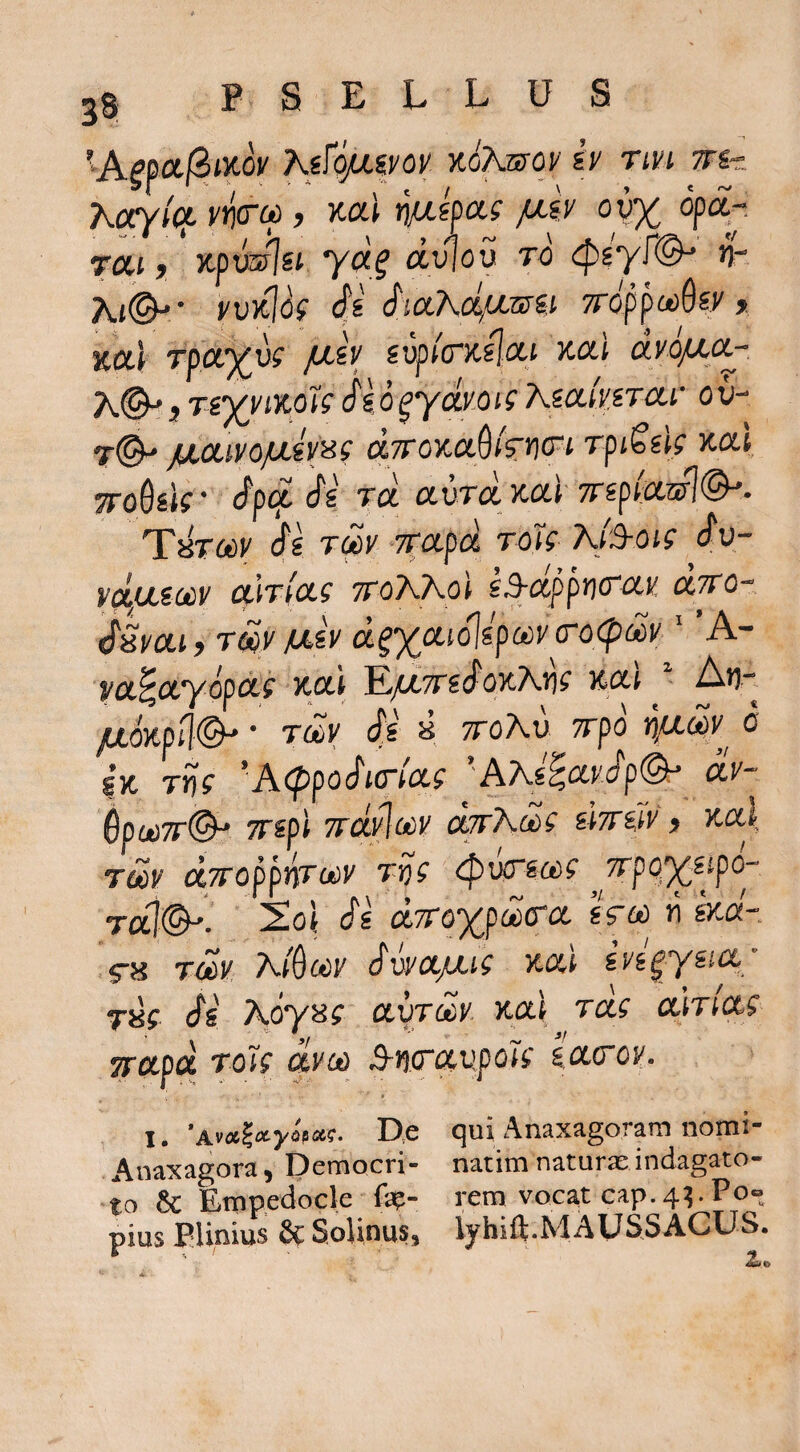 38 PSELLUS
Ἀῤῥαβικὸν λεγόμενον κόλπον ἔν τινι πε-
λαγίᾳ νήσῳ, καὶ ἡμέρας μὲν οὐχ ὁρᾶ-
ται, κρύπτει γὰρ αὐτοῦ τὸ φέγγος ἥ-
λιος· νυκτὸς δὲ διαλάμπει πόῤῥωθεν,
καὶ τραχὺς μὲν εὑρίσκεται καὶ ἀνόμα-
λος, τεχνικοῖς δὲ ὀργάνοις λεαίνεται· οὗ-
τος μαινομένους ἀποκαθίστησι τριβεὶς καὶ
ποθεὶς· δρᾷ δὲ τὰ αὐτὰ καὶ περίαπτος.
Τούτων δὲ τῶν παρὰ τοῖς λίθοις δυ-
νάμεων αἰτίας πολλοὶ ἐθάῤῥησαν ἀπο-
δοῦναι, τῶν μὲν ἀρχαιοτέρων σοφῶν ¹ Ἀ-
ναξαγόρας καὶ Ἐμπεδοκλῆς καὶ ² Δη-
μόκριτος· τῶν δὲ οὐ πολὺ πρὸ ἡμῶν ὁ
ἐκ τῆς Ἀφροδισίας Ἀλέξανδρος ἄν-
θρωπος περὶ πάντων ἁπλῶς εἰπεῖν, καὶ
τῶν ἀποῤῥήτων τῆς φύσεως προχειρό-
τατος. Σοὶ δὲ ἀποχρῶσα ἔστω ἡ ἑκά-
στου τῶν λίθων δύναμις καὶ ἐνέργεια·
τοὺς δὲ λόγους αὐτῶν καὶ τὰς αἰτίας
παρὰ τοῖς ἄνω θησαυροῖς ἔασον.
1. Ἀναξαγόρας. De
Anaxagora, Democri-
to & Empedocle sæ-
pius Plinius & Solinus,
qui Anaxagoram nomi-
natim naturæ indagato-
rem vocat cap. 43. Po-
lyhist. MAUSSACUS.
2.